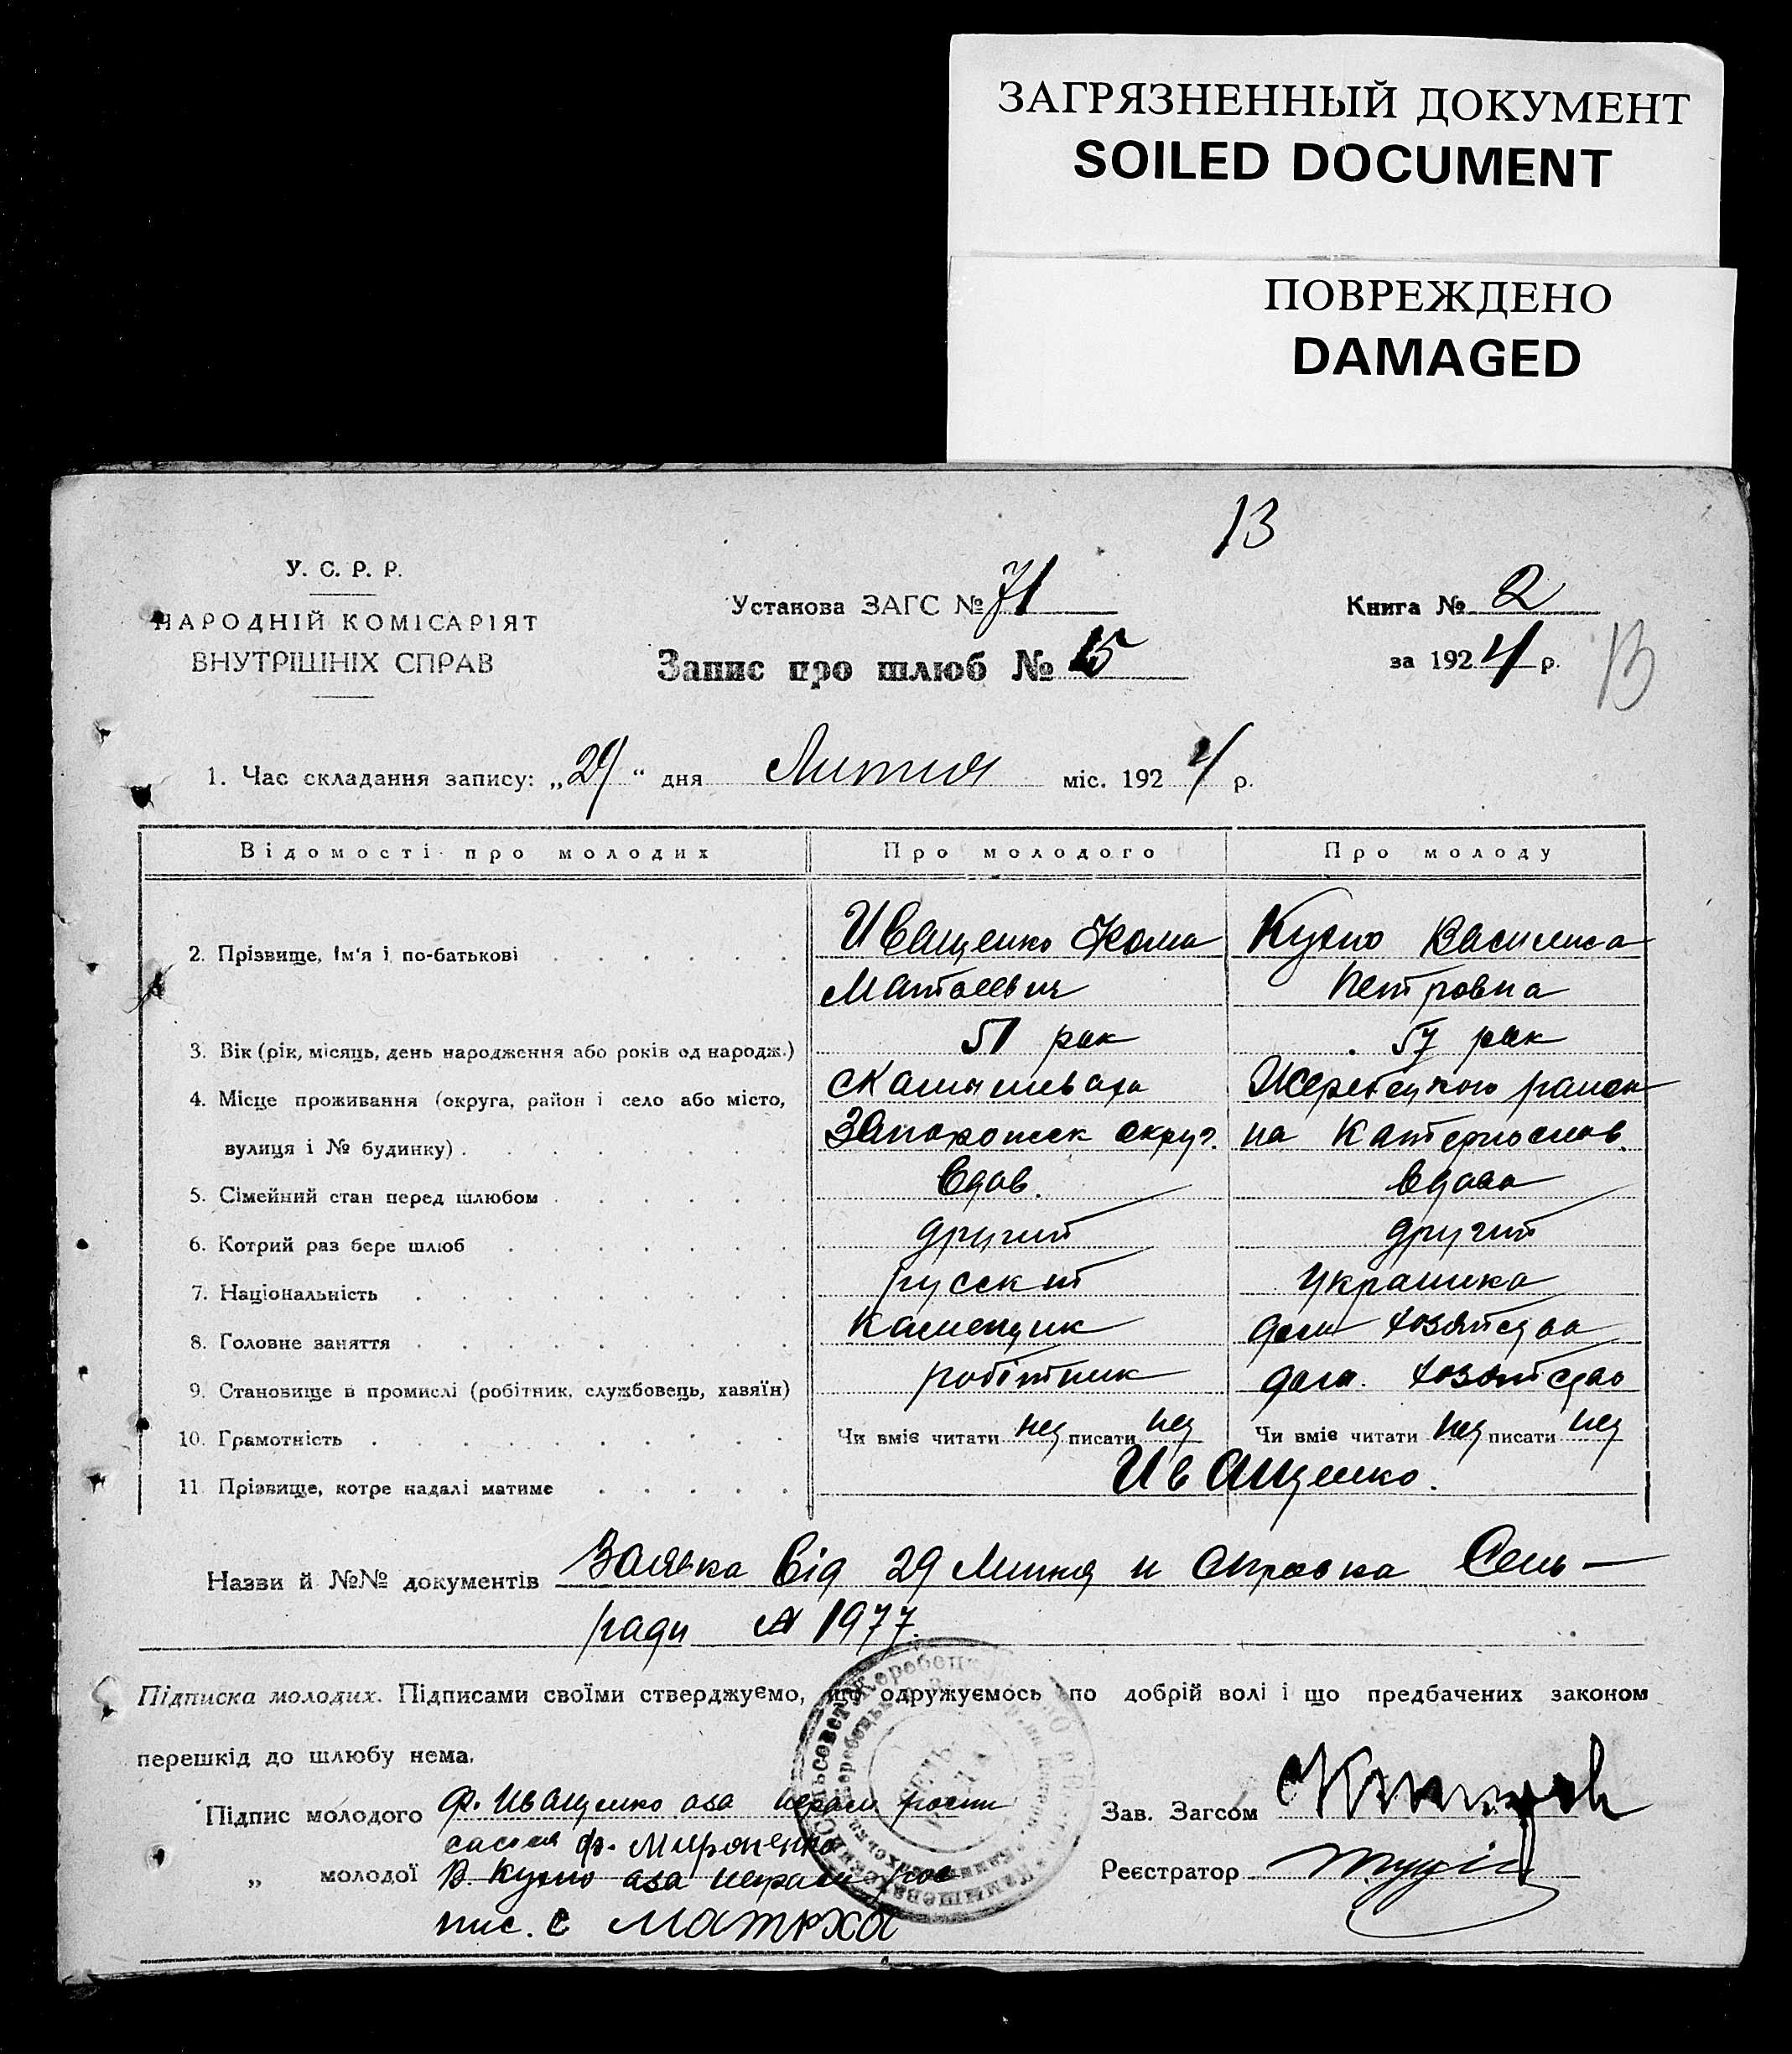 ЗАГРЯЗНЕННЫЙ ДОКУМЕНТ
SOILED DOCUMENT
ПОВРЕЖДЕНО
DAMAGED
13
У. С. Р. Р.
НАРОДНІЙ КОМІСАРІЯТ
ВНУТРІШНІХ СПРАВ
Установа ЗАГС № 71
Запис про шлюб № 15
Книга № 2
за 1924 р.
13
1. Час складання запису: „29“ дня Лютня міс. 1924 р.
Відомості про молодих Про молодого Про молоду
2. Прізвище, Ім'я і по-батькові Иващенко Фома Василиса
Матвеевич Петровна
3. Вік (рік, місяць, день народження або років од народж.) 51 рок 57 рок
4. Місце проживання (округа, район і село або місто, Жеребецкого район
вулиця і № будинку) Запорожск округ. на Катеринослав.
5. Сімейний стан перед шлюбом Вдов. Вдова
6. Котрий раз бере шлюб другий другий
7. Національність русский Украинка
8. Головне заняття Каменщик дом хозяйства
9. Становище в промислі (робітник, службовець, хазяїн) робітник дом. хозяйство
10. Грамотність Чи вміє читати нет писати нет Чи вміє читати нет писати нет
11 Прізвище, котре надалі матиме Иващенко.
Назви й №№ документів Заявка від 29 и справка Сель-
ради № 1977.
Підписка молодих. Підписами своїми стверджуємо, що одружуємось по добрій волі і що предбачених законом
перешкід до шлюбу нема.
Підпис молодого Ф. Иващенко неграм
Ф. Мироненко
Зав. Загсом
„ молодої В. неграм
Реєстратор